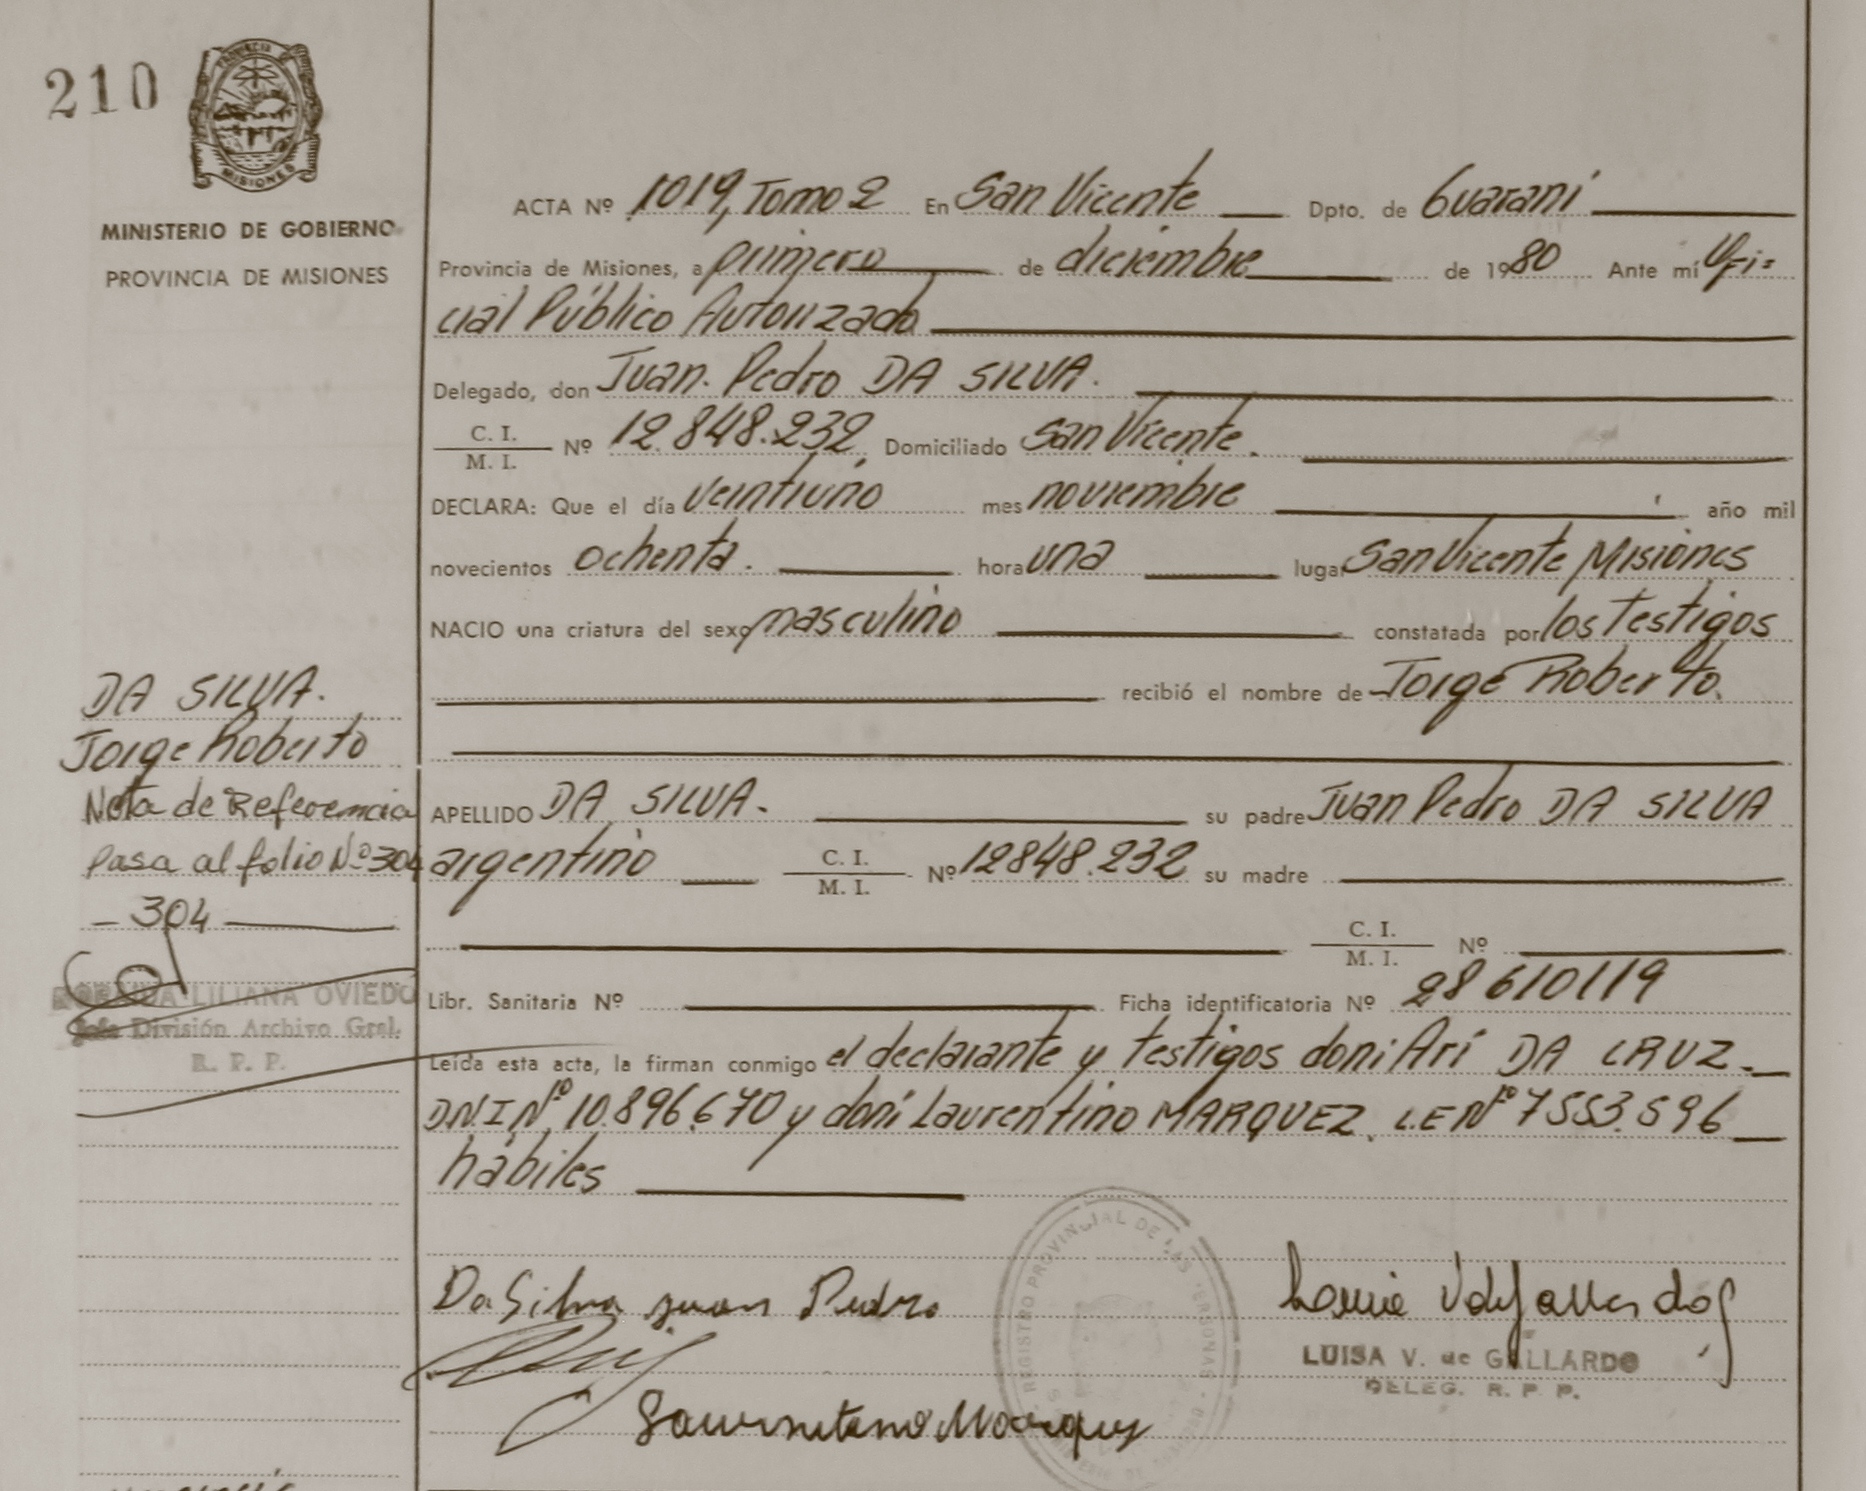 210
PROVINCIA DE
MISIONES
MINISTERIO DE GOBIERNO
PROVINCIA DE MISIONES
ACTA Nº 1019, Tomo 2 En San Vicente Dpto. de Guaraní
Provincia de Misiones, a primero de diciembre de 1980 Ante mí Ofi=
cial Público Autorizado
Delegado, don Juan. Pedro DA SILVA.
C. I.
M. I. Nº 12.848.232 Domiciliado San Vicente.
DECLARA: Que el día veintiuno mes noviembre año mil
novecientos ochenta. hora una lugar San Vicente Misiones
NACIO una criatura del sexo masculino constatada por los Testigos
recibió el nombre de Jorge Roberto.
DA SILVA.
Jorge Roberto
Nota de Referencia
Pasa al folio Nº 304
- 304
LILIANA OVIEDO
Jefa División Archivo Gral.
R. P. P.
APELLIDO DA SILVA. su padre Juan Pedro DA SILVA
argentino C. I.
M. I. Nº 12848.232 su madre
C. I.
M. I. Nº
Libr. Sanitaria Nº Ficha identificatoria Nº 28610119
Leída esta acta, la firman conmigo el declarante y testigos don: Arí DA CRUZ.
D.N.I Nº 10.896.670 y don: Laurentino MARQUEZ. L.E Nº 7553.596
hábiles
Da Silva juan Pedro
REGISTRO PROVINCIAL DE LAS PERSONAS
LUISA V. de GALLARDO
DELEG. R. P. P.